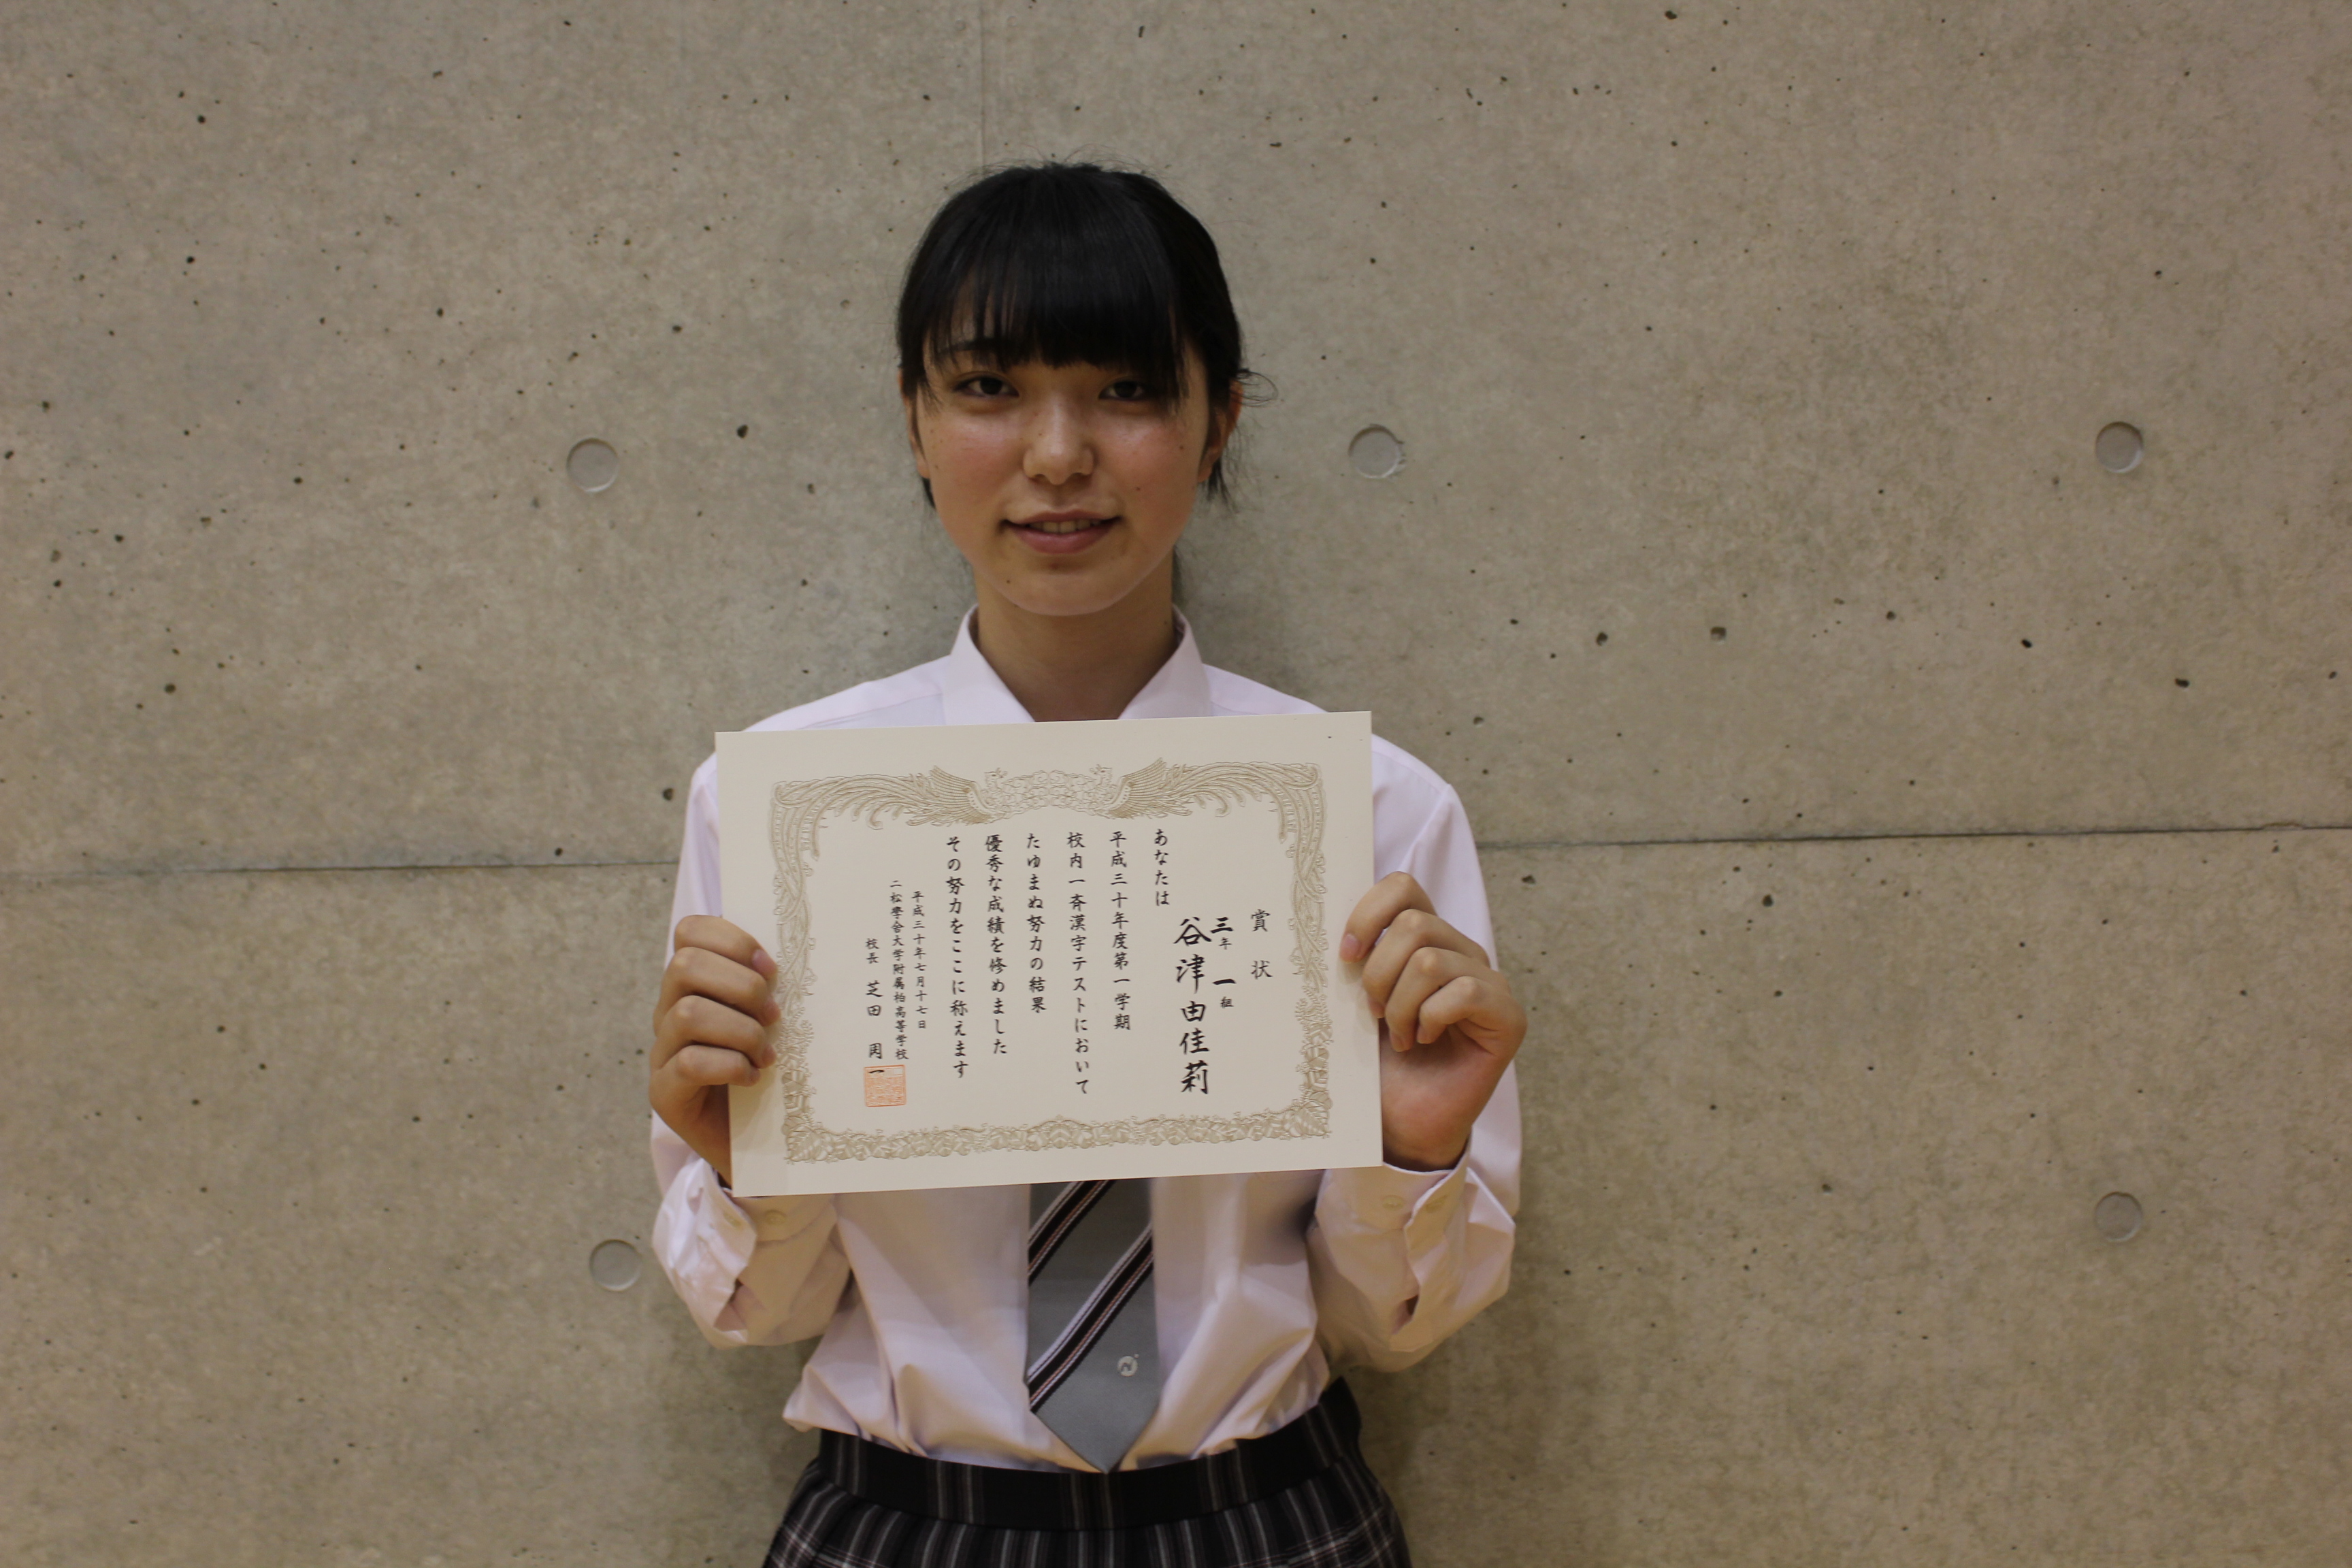 賞状
三年 一組
谷津由佳莉
あなたは
平成三十年度第一学期
校内一斉漢字テストにおいて
たゆまぬ努力の結果
優秀な成績を修めました
その努力をここに称えます
平成三十年七月十七日
二松學舍大学附属柏高等学校
校長 芝田 周一